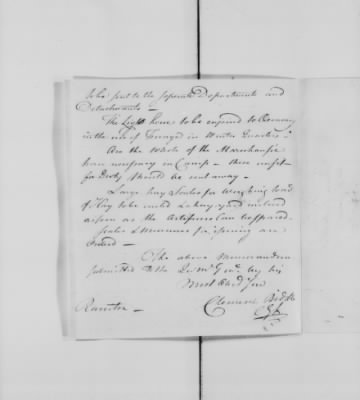 to be sent to the seperate Departments and
Detachments —
The Light horse to be enjoined to Oeconomy
in the use of Forage in Winter Quarters —
Are the whole of the
necessary in Camp — those unfit
for Duty should be sent away —
Large Hay Scales for weighing load
of Hay to be
as soon as the Artificers Can be spared.
Scales &
Ordered —
The above Memorandum
submitted to the Qr Mr Genl by his
Most Obed Serv
Clement Biddle
Raritan —